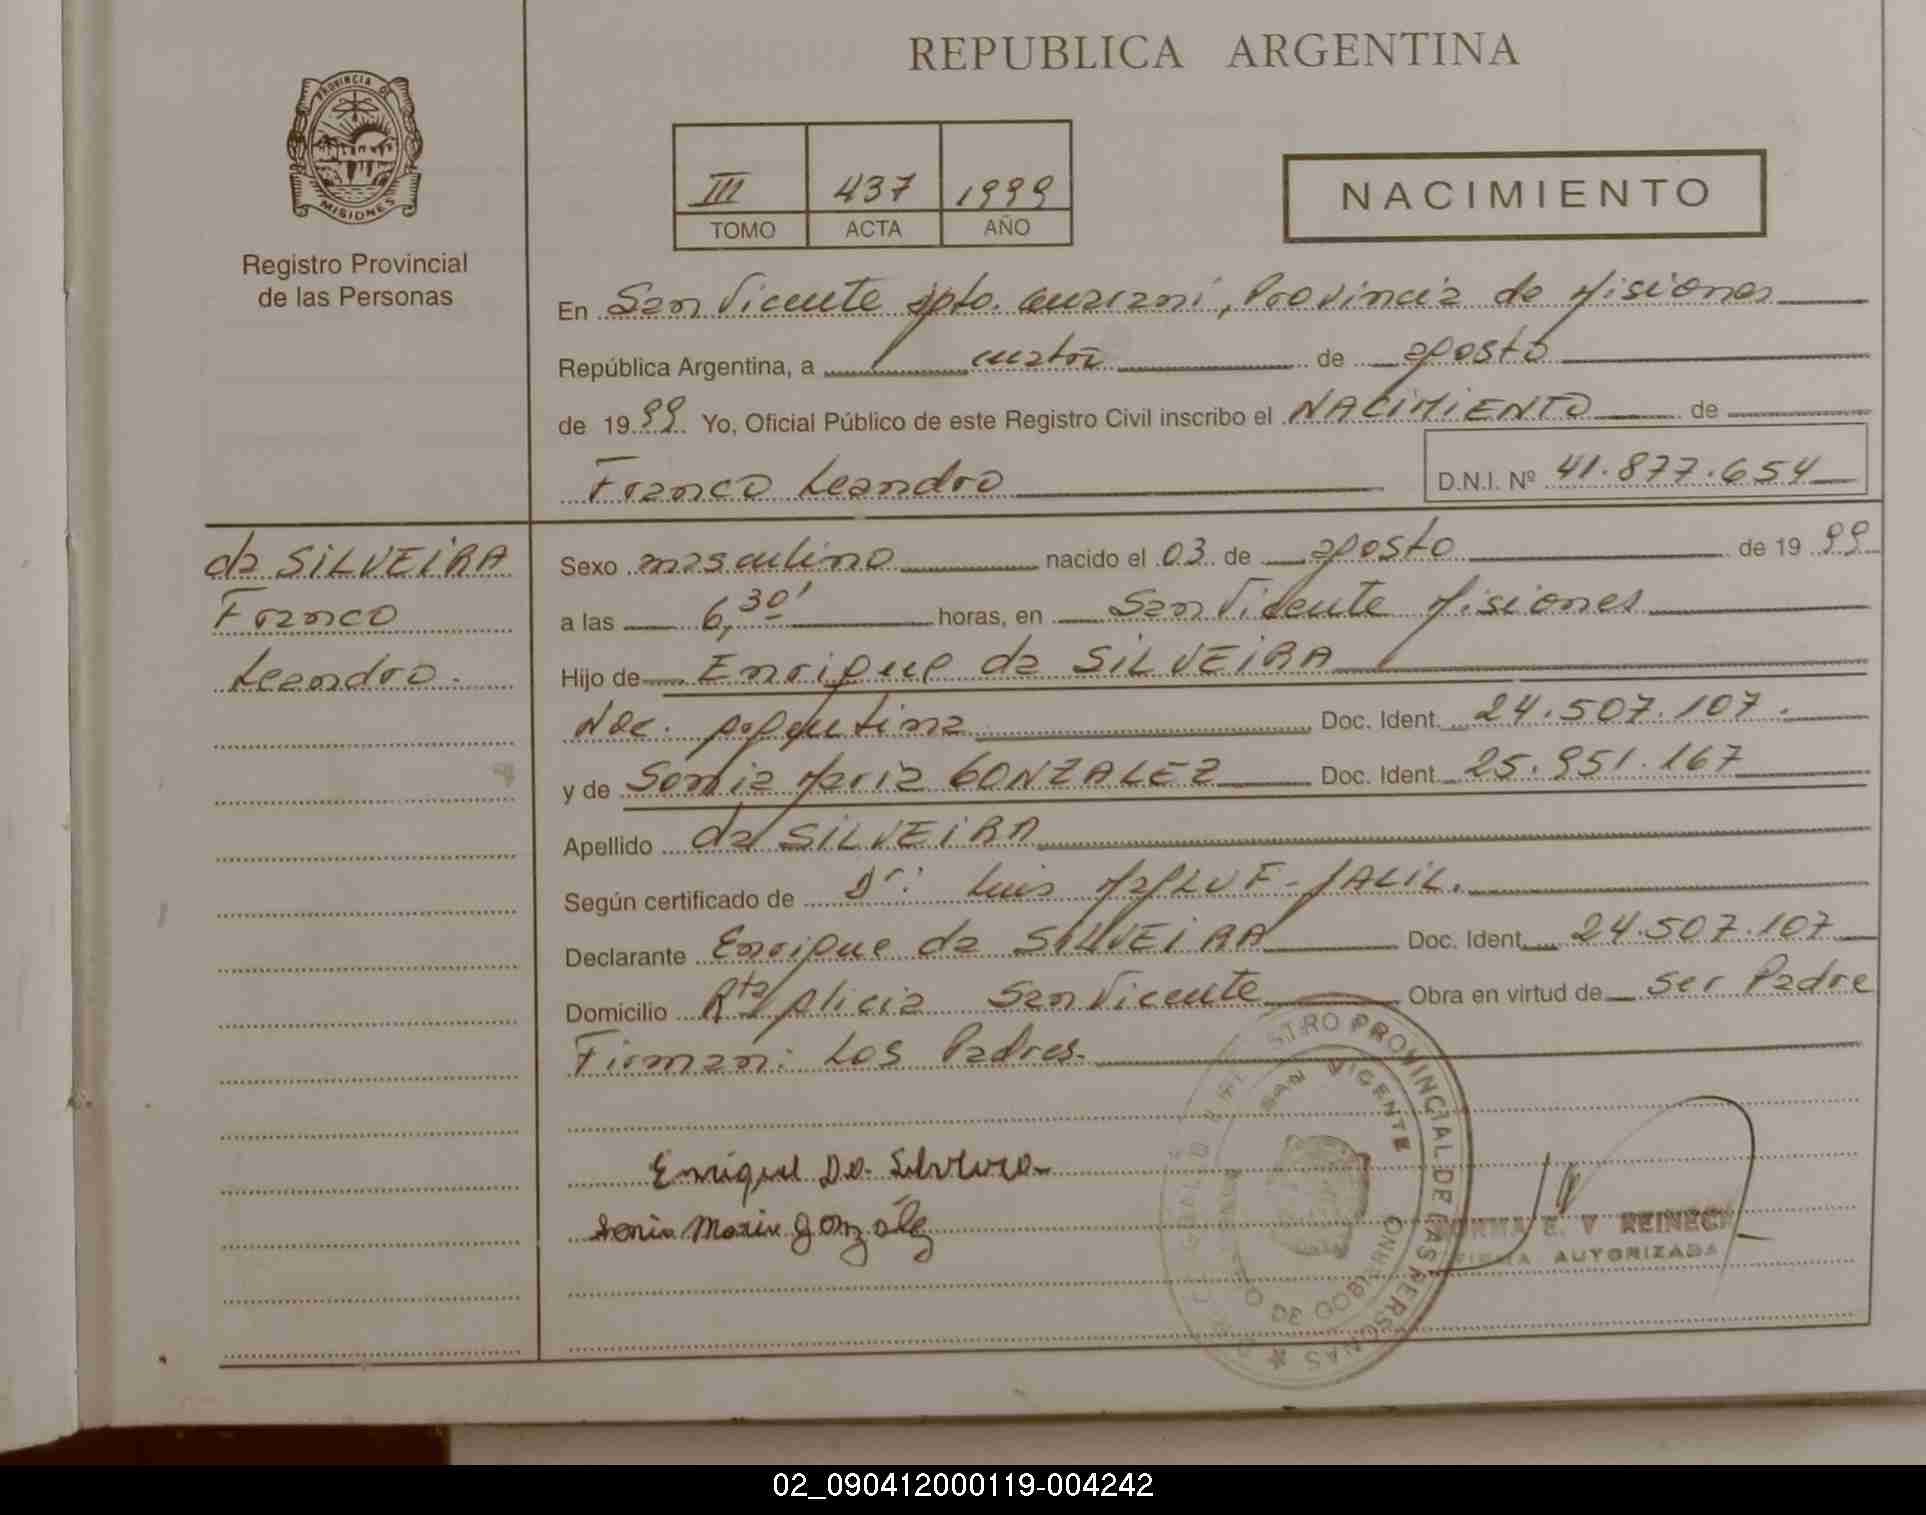 REPUBLICA ARGENTINA
PROVINCIA DE
MISIONES
Registro Provincial
de las Personas
III 437 1999
TOMO ACTA AÑO
NACIMIENTO
En San Vicente Dpto. Guaraní, Provincia de Misiones
República Argentina, a cuatro de agosto
de 1999 Yo, Oficial Público de este Registro Civil inscribo el NACIMIENTO de
Franco Leandro D.N.I. Nº 41.877.654
da SILVEIRA
Franco
Leandro.
Sexo masculino nacido el 03 de agosto de 1999
a las 6,30' horas, en San Vicente Misiones
Hijo de Enrique da SILVEIRA
Nac. Argentina Doc. Ident. 24.507.107.
y de Sonia Maria GONZALEZ Doc. Ident. 25.951.167
Apellido da SILVEIRA
Según certificado de Dr: Luis JALIL.
Declarante Enrique da SILVEIRA Doc. Ident. 24.507.107
Domicilio Alicia San Vicente Obra en virtud de ser Padre
Firman: Los Padres.
Enrique Da Silveira
Sonia Maria González
REGISTRO PROVINCIAL DE LAS PERSONAS
SAN VICENTE
DE GOBIERNO
NORMA E. V REINECK
FIRMA AUTORIZADA
02_090412000119-004242